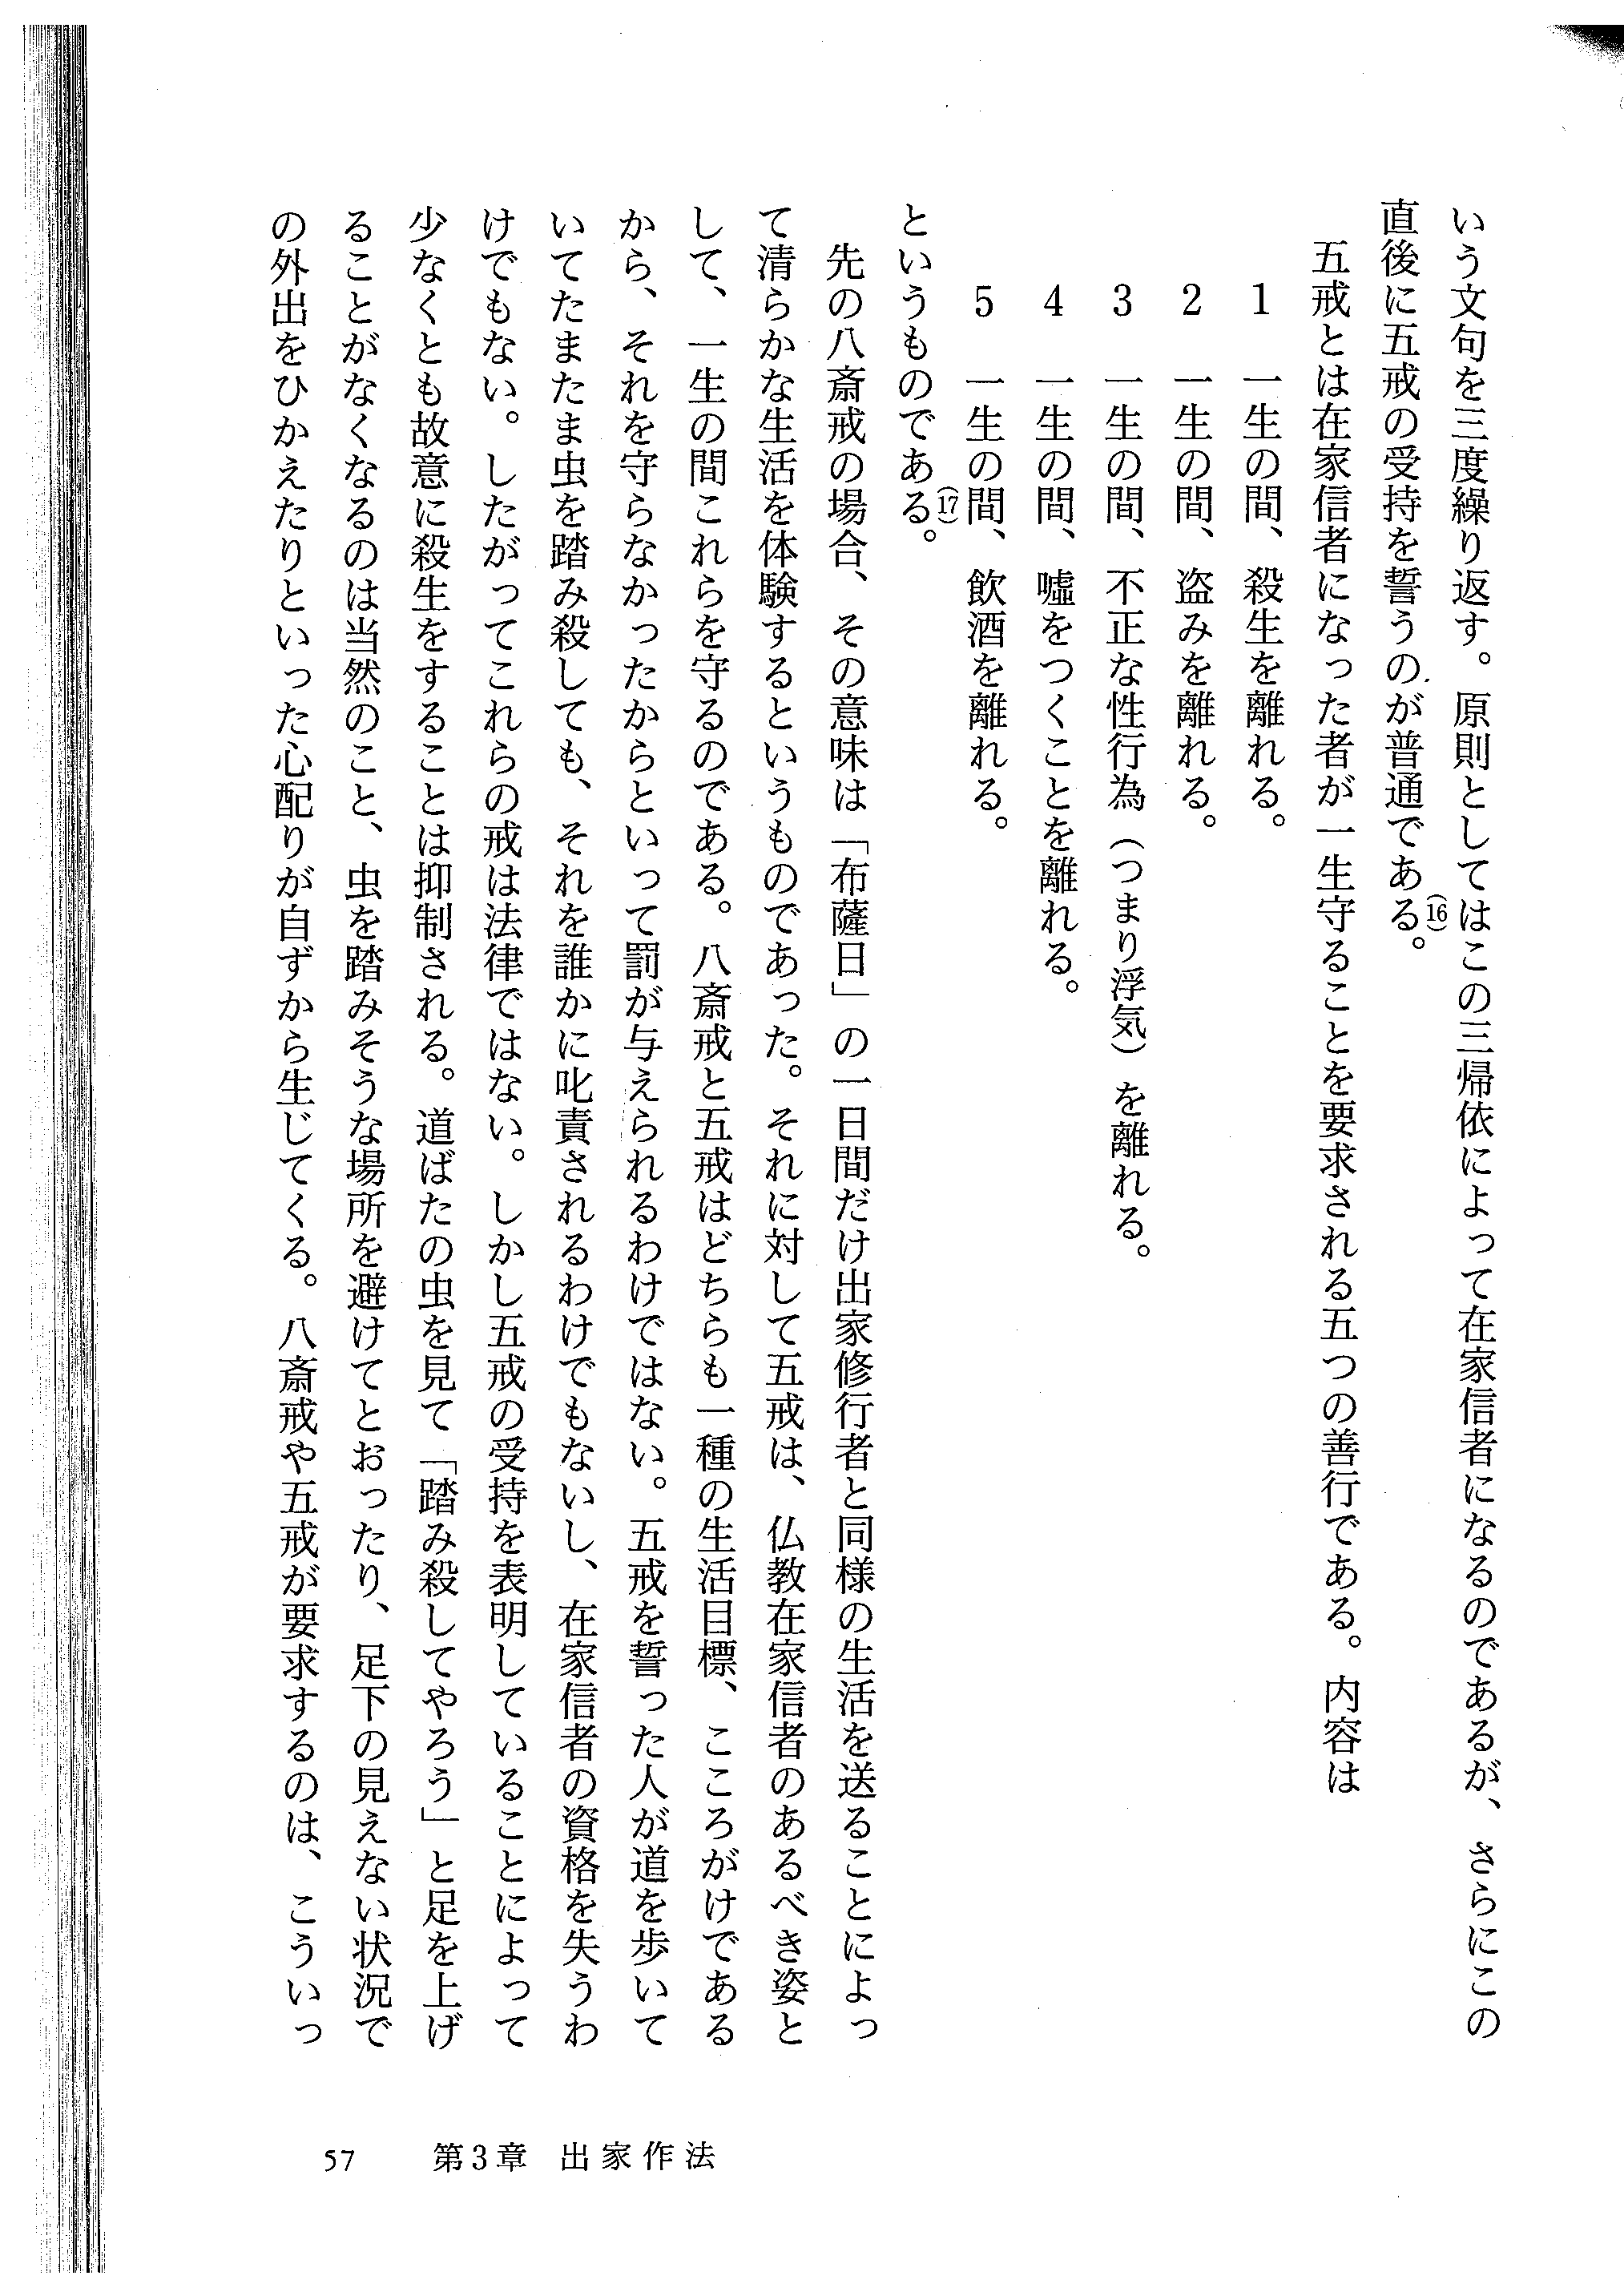 いう文句を三度繰り返す。原則としてはこの三帰依によって在家信者になるのであるが、さらにこの
直後に五戒の受持を誓うのが普通である。(16)
五戒とは在家信者になった者が一生守ることを要求される五つの善行である。内容は
1 一生の間、殺生を離れる。
2 一生の間、盗みを離れる。
3 一生の間、不正な性行為（つまり浮気）を離れる。
4 一生の間、嘘をつくことを離れる。
5 一生の間、飲酒を離れる。
というものである。(17)
先の八斎戒の場合、その意味は「布薩日」の一日間だけ出家修行者と同様の生活を送ることによっ
て清らかな生活を体験するというものであった。それに対して五戒は、仏教在家信者のあるべき姿と
して、一生の間これらを守るのである。八斎戒と五戒はどちらも一種の生活目標、こころがけである
から、それを守らなかったからといって罰が与えられるわけではない。五戒を誓った人が道を歩いて
いてたまたま虫を踏み殺しても、それを誰かに叱責されるわけでもないし、在家信者の資格を失うわ
けでもない。したがってこれらの戒は法律ではない。しかし五戒の受持を表明していることによって
少なくとも故意に殺生をすることは抑制される。道ばたの虫を見て「踏み殺してやろう」と足を上げ
ることがなくなるのは当然のこと、虫を踏みそうな場所を避けてとおったり、足下の見えない状況で
の外出をひかえたりといった心配りが自ずから生じてくる。八斎戒や五戒が要求するのは、こういっ
57 第3章 出家作法